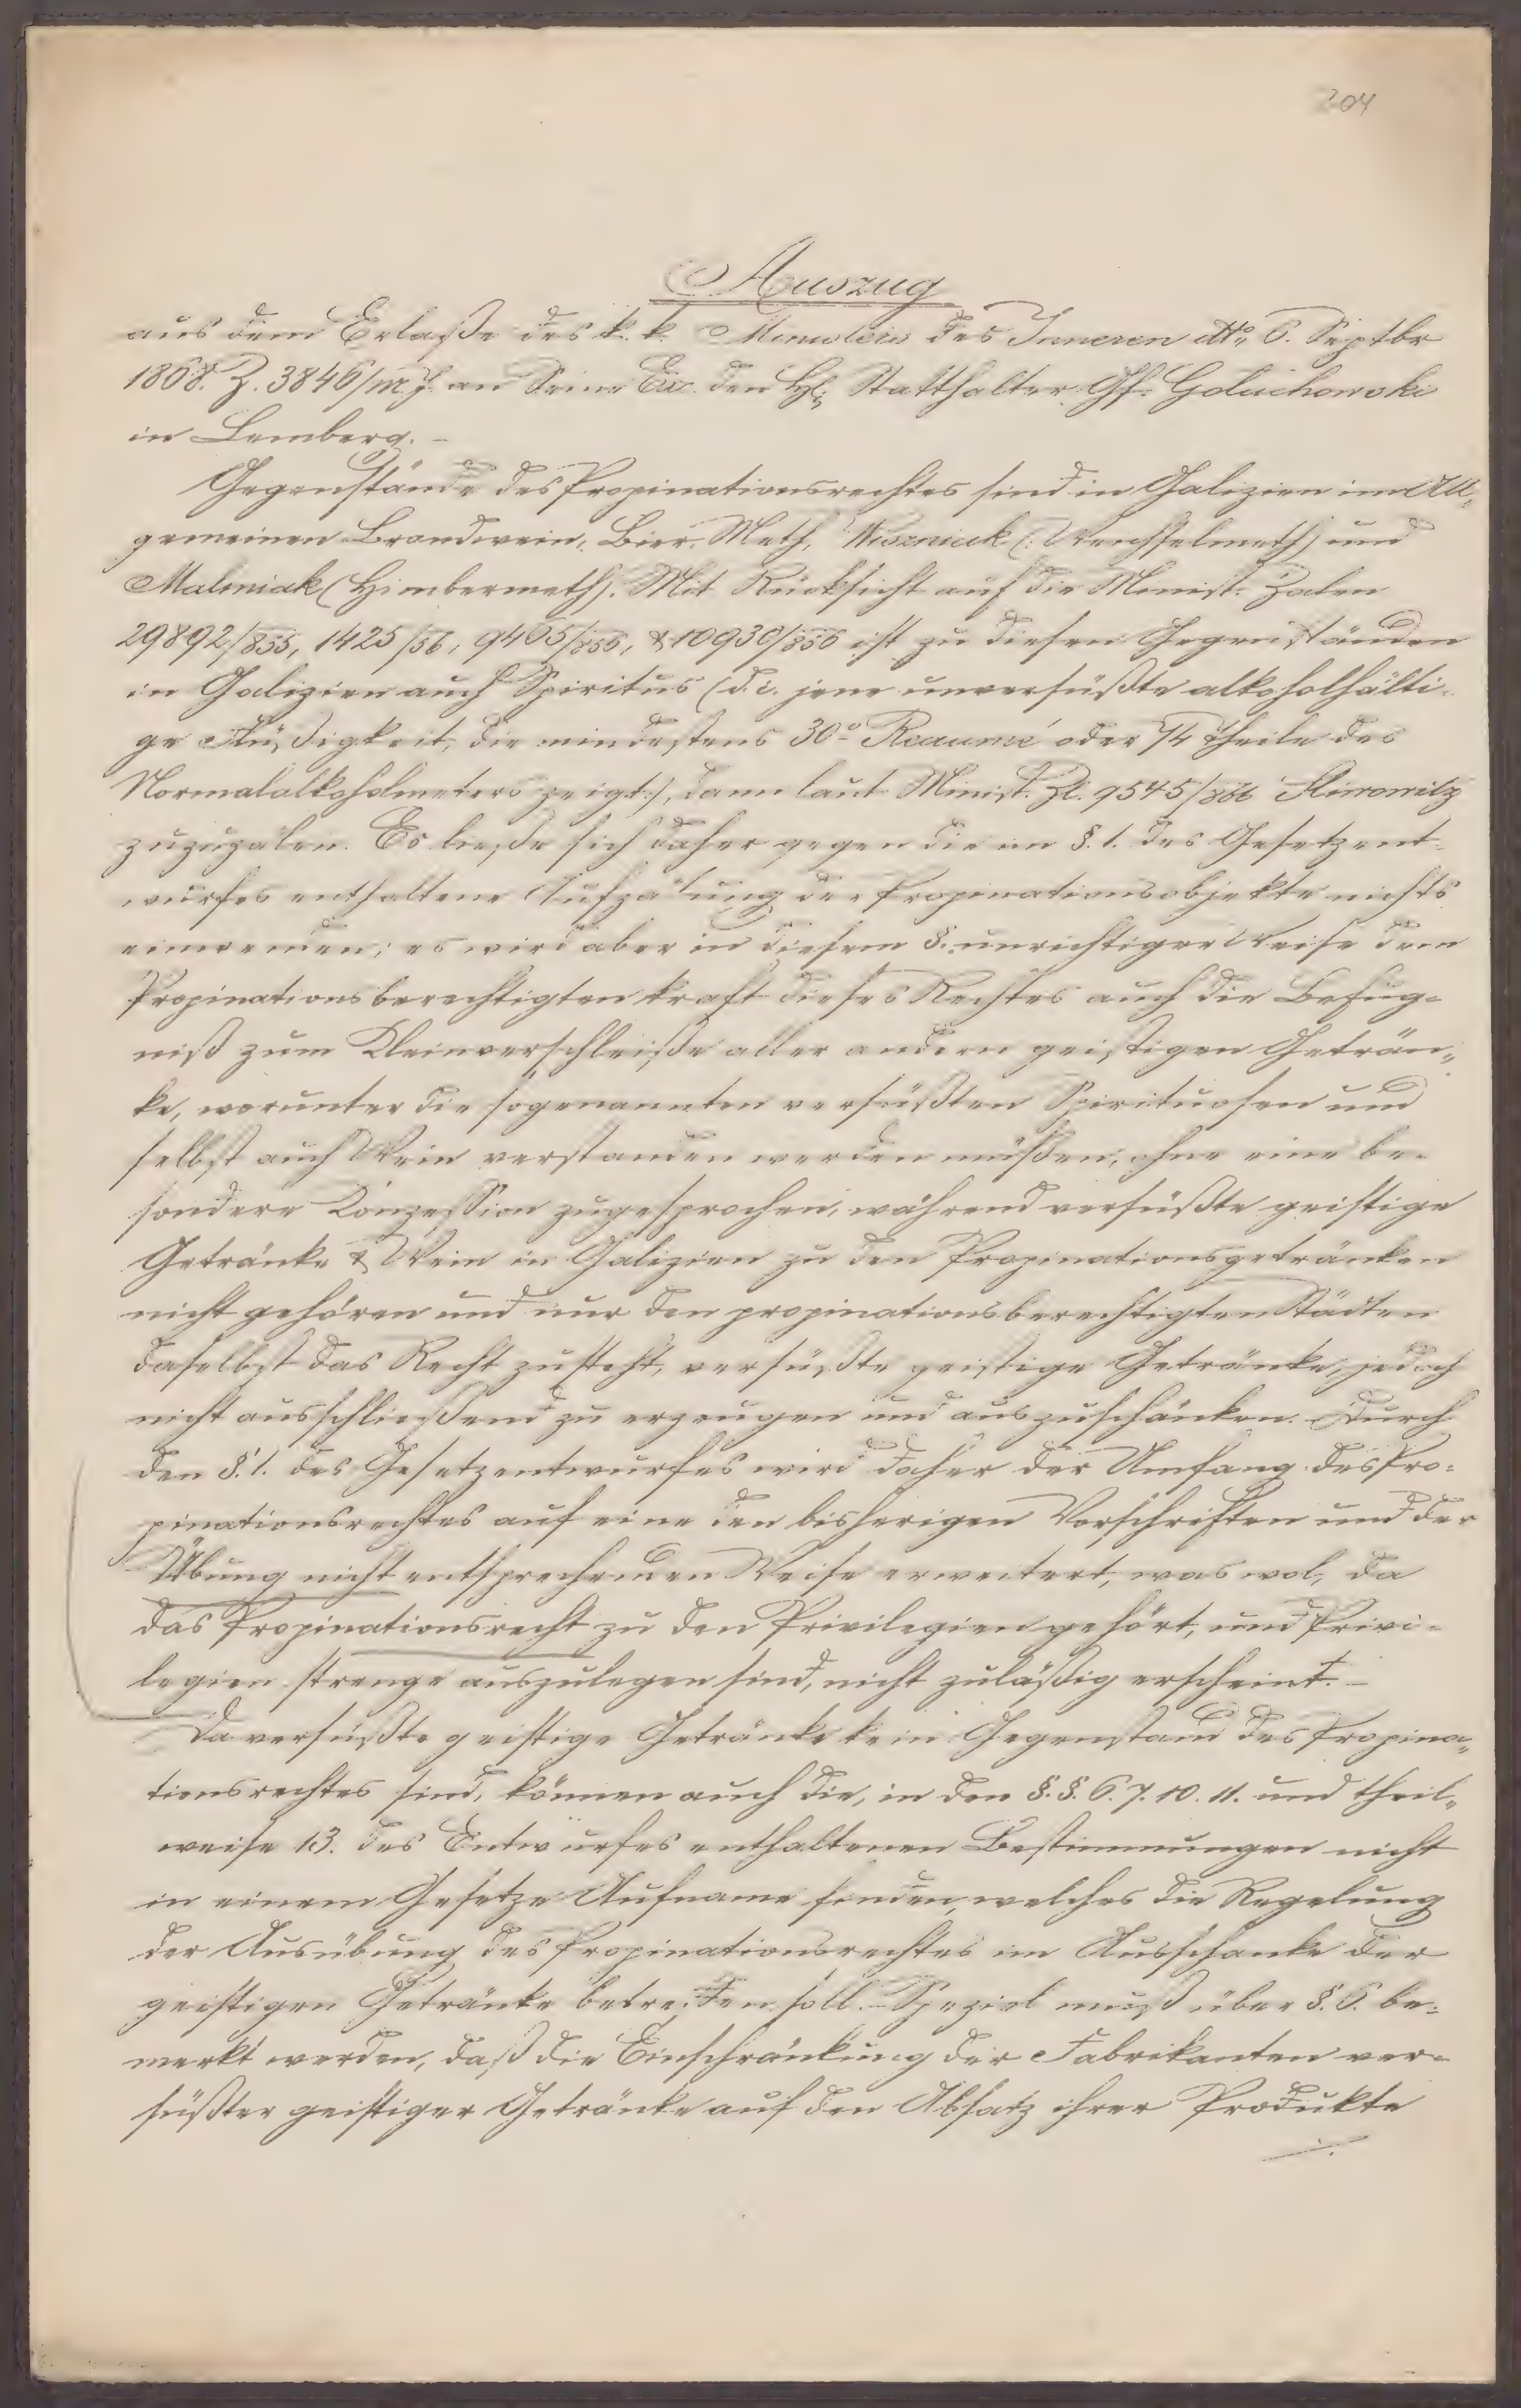 304
Auszug
aus dem Erlaße des k. k. Ministers des Inneren dtto 6. Septbr
1868. Z. 3846/M.J. an Seine Exc. den H. Statthalter Gf. Goluchowski
in Lemberg. –
Gegenstände des Propinationsrechtes sind in Galizien im All-
gemeinen Brandwein, Bier, Meth, Wiszniak (: Weichselmeth) und
Maliniak (Himbermeth). Mit Rücksicht auf die Minist. Zalen
29892/855, 1425/56, 9405/856, & 10930/856 ist zu diesen Gegenständen
in Galizien auch Spiritus (d. i. jene unversüßte alkoholhälti-
ge Flüßigkeit, die mindestens 30° Reaumé oder 74 Theile des
Normalalkoholmeters zeigt:), dann laut Minist. Zl. 9545/866 Sliwowitz
zuzuzälen. Es ließe sich daher gegen die im §. 1. des Gesetzent-
wurfes enthaltene Aufzälung der Propinationsobjekte nichts
einwenden; es wird aber in diesem §. unrichtiger Weise dem
Propinationsberechtigten kraft dieses Rechtes auch die Befug-
niß zum Kleinverschleiße aller andern geistigen Geträn-
ke, worunter die sogenannten versüßten Spirituosen und
selbst auch Wein verstanden werden müßen, ohne eine be-
sondere Conzession zugesprochen, während versüßte geistige
Getränke & Wein in Galizien zu den Propinationsgetränken
nicht gehören und nur den propinationsberechtigten Städten
daselbst das Recht zusteht, versüßte geistige Getränke, jedoch
nicht ausschließend zu erzeugen und auszuschänken. Durch
den §. 1. des Gesetzentwurfes wird daher der Umfang des Pro-
pinationsrechtes auf eine den bisherigen Vorschriften und der
Übung nicht entsprechenden Weise erweitert, was wol, da
das Propinationsrecht zu den Privilegien gehört, und Privi-
legien strenge auszulegen sind, nicht zuläßig erscheint. –
Da versüßte geistige Getränke kein Gegenstand des Propina-
tionsrechtes sind, können auch die, in den §. §. 6. 7. 10. 11. und theil-
weise 13. des Entwurfes enthaltenen Bestimmungen nicht
in einem Gesetze Aufname finden, welches die Regelung
der Ausübung des Propinationsrechtes im Ausschanke der
geistigen Getränke betreffen soll. – Speziel muß über §. 6. be-
merkt werden, daß die Einschränkung der Fabrikanten ver-
süßter geistiger Getränke auf den Absatz ihrer Produkte
./.